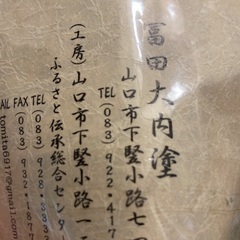 冨田大内塗
山口市下竪小路七
TEL (083) 922・417
(工房) 山口市下竪小路一
ふるさと伝承総合センタ
TEL (083) 928・3
FAX (083) 932・187
tomita6917@gmail.com